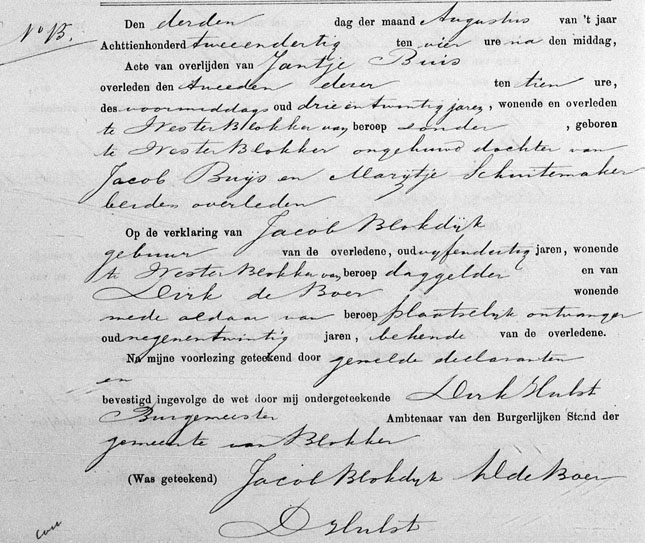 No 13.
Den derden dag der maand Augustus van 't jaar
Achttienhonderd tweeendertig ten vier ure na den middag,
Acte van overlijden van Jantje Buis
overleden den tweeden dezer ten tien ure,
des voormiddags oud drie en twintig jaren, wonende en overleden
te Westerblokker van beroep zonder, geboren
te Westerblokker ongehuwd dochter van
Jacob Buijs en Marijtje Schuitemaker
beiden overleden
Op de verklaring van Jacob Blokdijk
gebuur van de overledene, oud vijfendertig jaren, wonende
te Westerblokker van beroep daggelder en van
Dirk de Boer wonende
mede aldaar van beroep plaatselijk ontvanger
oud negenentwintig jaren, bekende van de overledene.
Na mijne voorlezing geteekend door gemelde declaranten
en
bevestigd ingevolge de wet door mij ondergeteekende Dirk Hulst
Burgemeester Ambtenaar van den Burgerlijken Stand der
gemeente van Blokker
(Was geteekend) Jacob Blokdijk de Boer
D Hulst